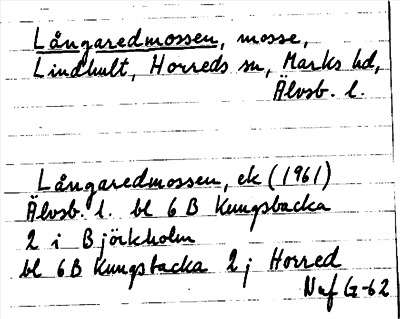 Långaredmossen, mosse,
Lindhult, Horreds sn, Marks hd,
Älvsb. l.
Långaredmossen, ek (1961)
Älvsb. l. bl 6 B Kungsbacka
2 i Björkholm
bl 6B Kungsbacka 2 j Horred
Naf G-62